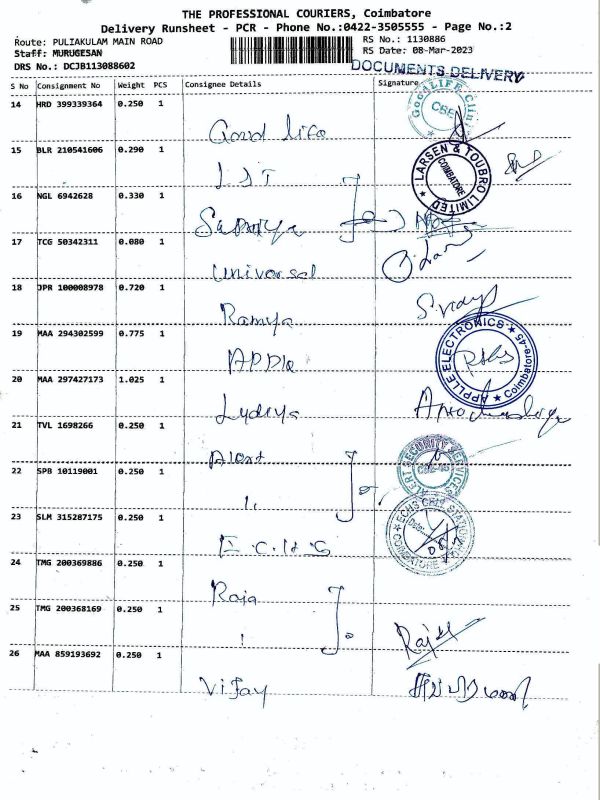 THE PROFESSIONAL COURIERS, Coimbatore
Delivery Runsheet - PCR - Phone No.:0422-3505555 - Page No.:2
Route: PULIAKULAM MAIN ROAD
RS No.: 1130886
Staff: MURUGESAN
RS Date: 08-Mar-2023
DRS No.: DCJB113088602
DOCUMENTS DELIVERY
S No Consignment No Weight PCS Consignee Details Signature
14 HRD 399339364 0.250 1
Good life
GOODLIFE Clinic
CBE
15 BLR 210541606 0.290 1
L&T
LARSEN & TOUBRO LIMITED
COIMBATORE
16 NGL 6942628 0.330 1
17 TCG 50342311 0.080 1
Universal
18 JPR 100008978 0.720 1
Ramya
19 MAA 294302599 0.775 1
Apple
APPLLE ELECTRONICS
Coimbatore-45
20 MAA 297427173 1.025 1
Lydiya
21 TVL 1698266 0.250 1
Alert
ALERT SECURITY SERVICES
CBE-45
22 SPB 10119001 0.250 1
23 SLM 315287175 0.250 1
E.C.H.S
ECHS
COIMBATORE
24 TMG 200369886 0.250 1
Raja
25 TMG 200368169 0.250 1
26 MAA 859193692 0.250 1
Vijay